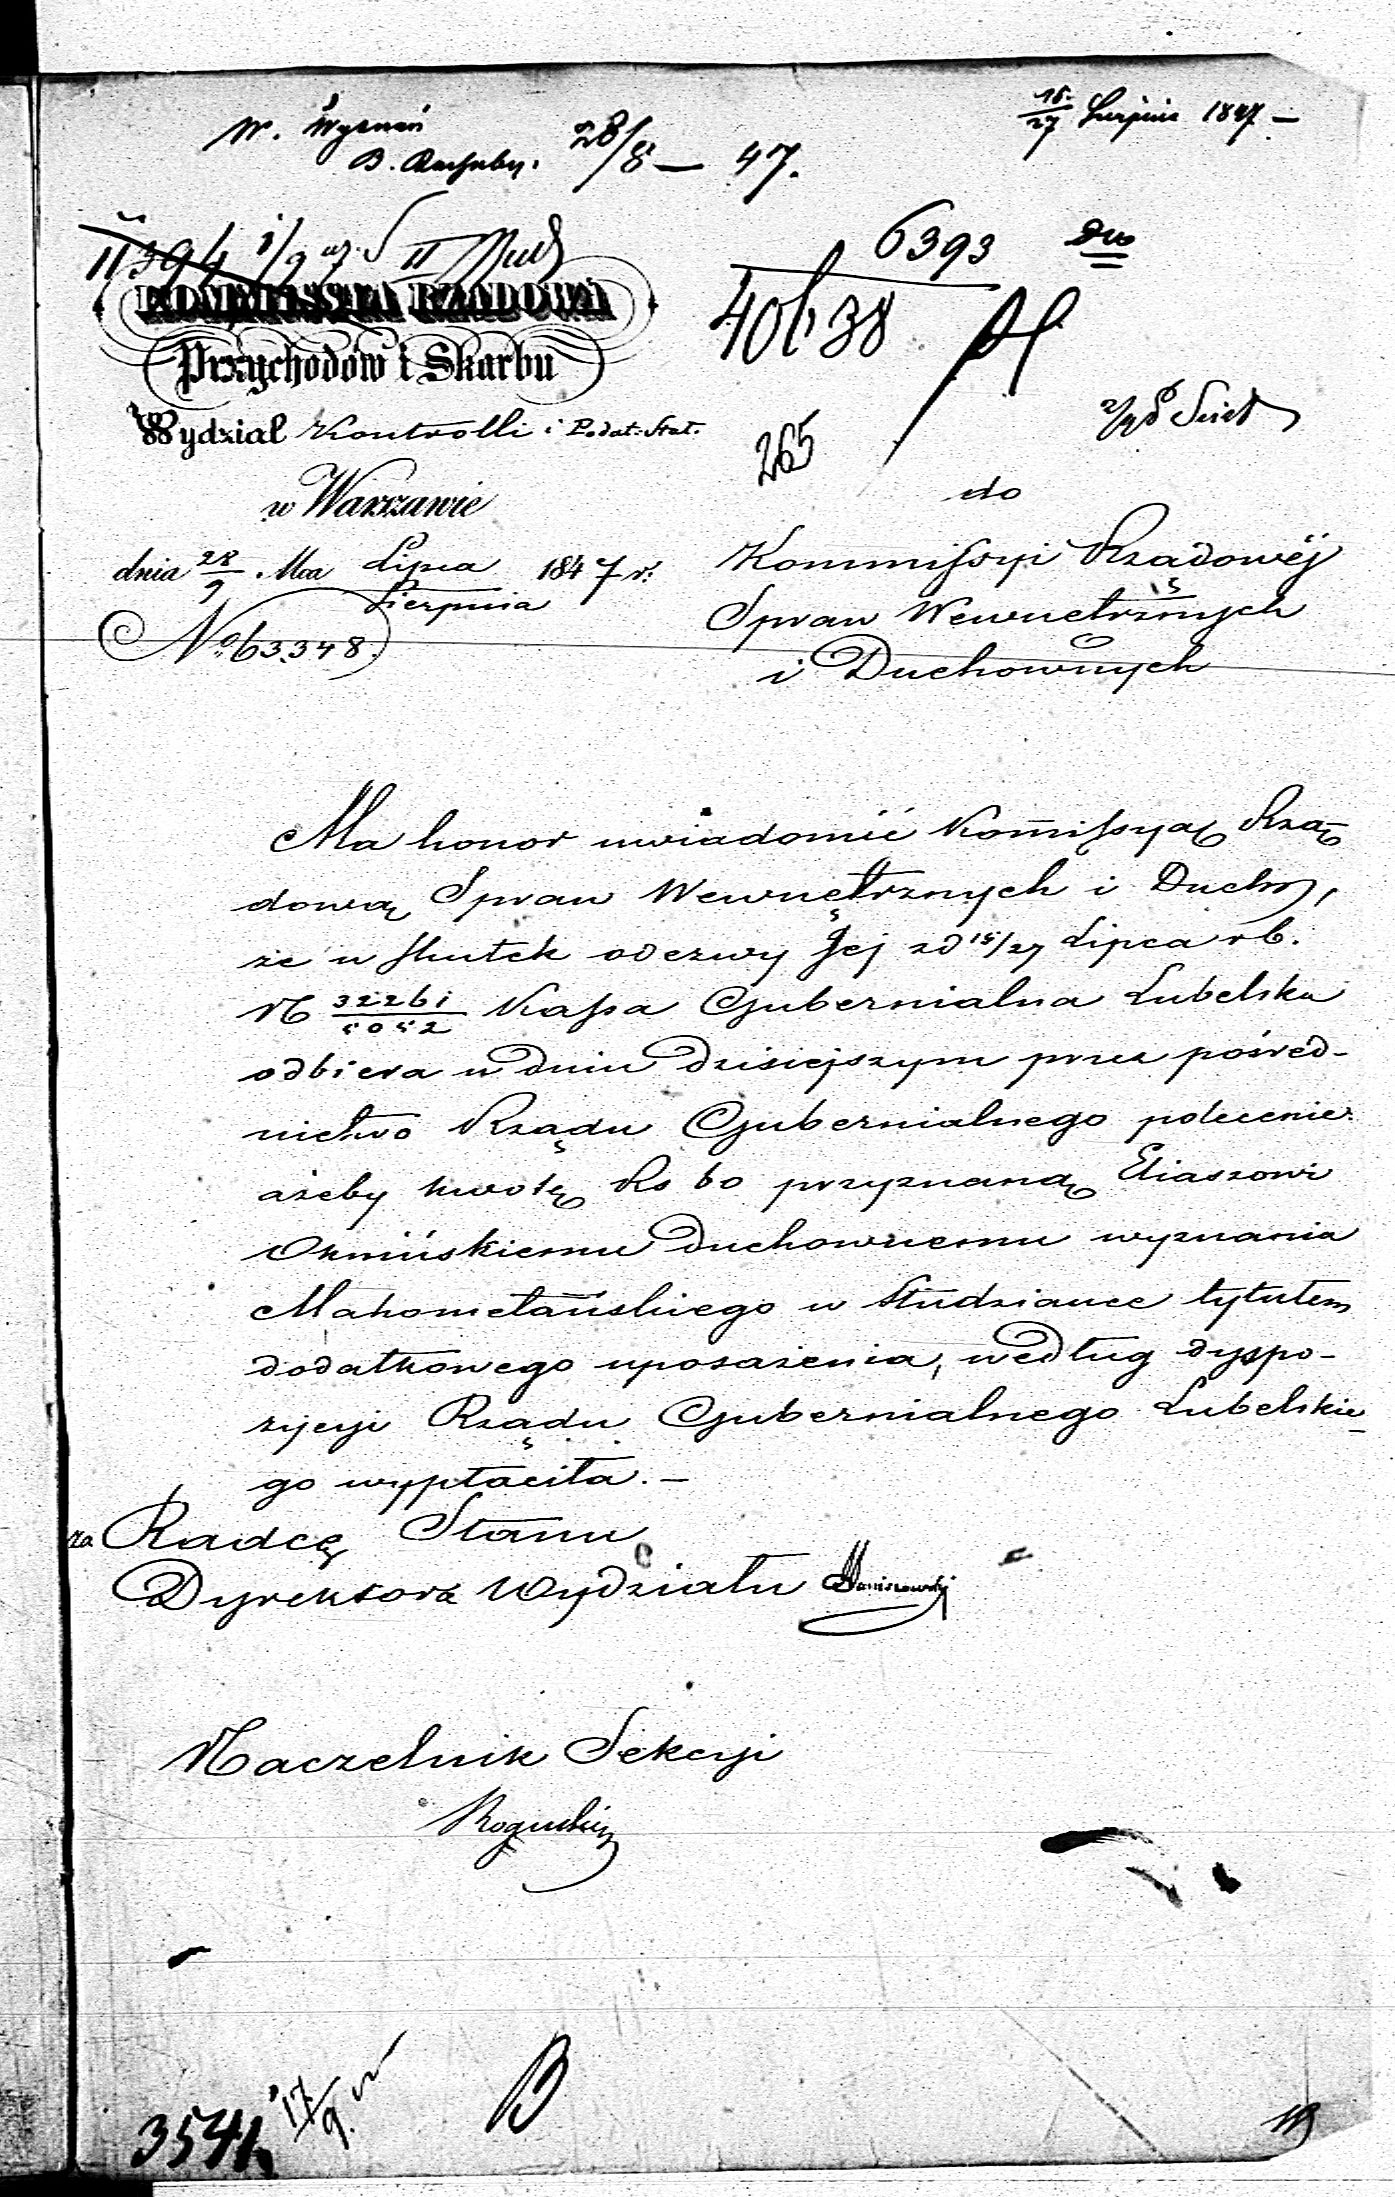 W. Wyznań
28/8 — 47.
15/27 Sierpnia 1847 —
11394
6393
40638
265
KOMMISSYA RZĄDOWA
Przychodów i Skarbu
Wydział Kontrolli i Podat: Stał.
w Warszawie
dnia 28/9 Mca Lipca/Sierpnia 1847 r:
No. 63348.
do
Kommissyi Rządowéj
Spraw Wewnętrznych
i Duchownych
Ma honor uwiadomić Kommissyą Rzą-
dową Spraw Wewnętrznych i Duchn,
że w skutek odezwy Jej z d 15/27 Lipca r b.
N 32261/5052 Kassa Gubernialna Lubelska
odbiera w dniu dzisiejszym przez pośred-
nictwo Rządu Gubernialnego polecenie
ażeby kwotę Rs 60 przyznaną Eliaszowi
Okmińskiemu Duchownemu wyznania
Mahometańskiego w Studziance tytułem
dodatkowego uposażenia, według dyspo-
zycyi Rządu Gubernialnego Lubelskie-
go wypłaciła. —
za Radcę Stanu
Dyrektora Wydziału
Naczelnik Sekcyi
Rogulski
3541
17/9
B
19